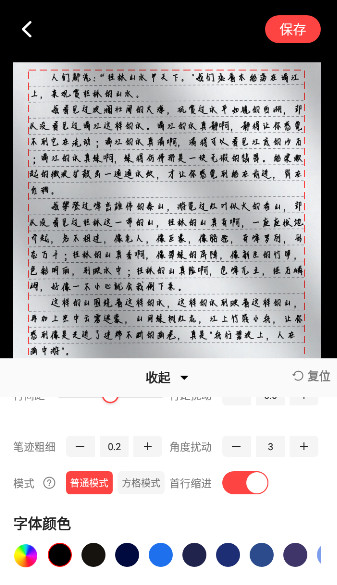 保存
人们都说："桂林山水甲天下。"我们乘着木船荡在漓江
上，来观赏桂林的山水。
我看见过波澜壮阔的大海，玩赏过水平如镜的西湖，却
从没看见过漓江这样的水。漓江的水真静啊，静得让你感觉
不到它在流动；漓江的水真清啊，清得可以看见江底的沙石
；漓江的水真绿啊，绿得仿佛那是一块无瑕的翡翠。船桨激
起的微波扩散出一道道水纹，才让你感觉到船在前进，岸在
后移。
我攀登过峰峦雄伟的泰山，游览过红叶似火的香山，却
从没看见过桂林这一带的山，桂林的山真奇啊，一座座拔地
而起，各不相连，像老人，像巨象，像骆驼，奇峰罗列，形
态万千；桂林的山真秀啊，像翠绿的屏障，像新生的竹笋，
色彩明丽，倒映水中；桂林的山真险啊，危峰兀立，怪石嶙
峋，好像一不小心就会栽倒下来。
这样的山围绕着这样的水，这样的水倒映着这样的山，
再加上空中云雾迷蒙，山间绿树红花，江上竹筏小舟，让你
感到像是走进了连绵不断的画卷，真是"舟行碧波上，人在
画中游"。
收起
复位
笔迹粗细 − 0.2 + 角度扰动 − 3 +
模式 ? 普通模式 方格模式 首行缩进
字体颜色